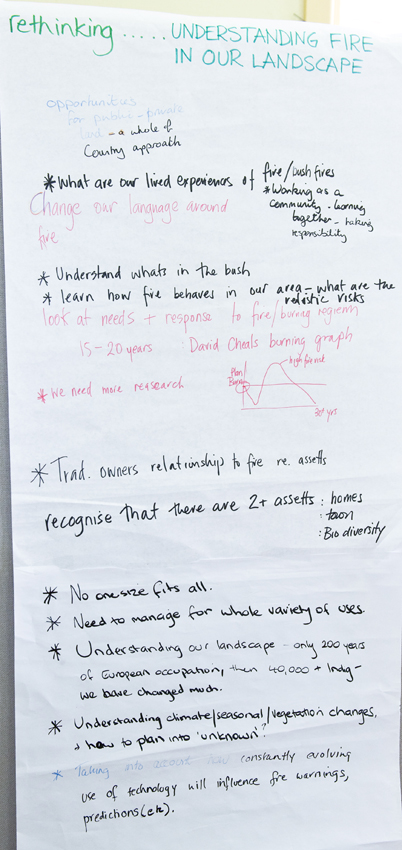 rethinking ..... UNDERSTANDING FIRE
IN OUR LANDSCAPE
opportunities
for public - private
land - a whole of
Country approach
* What are our lived experiences of fire/bush fires
* Working as a
community - learning
together - taking
responsibility
Change our language around
fire
* Understand whats in the bush
* learn how fire behaves in our area - what are the
realistic risks
look at needs + response to fire/burning regiem
15-20 years : David Cheals burning graph
* We need more reasearch
Plan/
Burn
high fire risk
30+ yrs
* Trad. owners relationship to fire re. assetts
recognise that there are 2+ assetts : homes
: town
: Bio diversity
* No one size fits all.
* Need to manage for whole variety of uses.
* Understanding our landscape - only 200 years
of European occupation, then 40,000 + Indig -
we have changed much.
* Understanding climate/seasonal/vegetation changes,
& how to plan into 'unknown'?
* Taking into account how constantly evolving
use of technology will influence fire warnings,
predictions (etc).